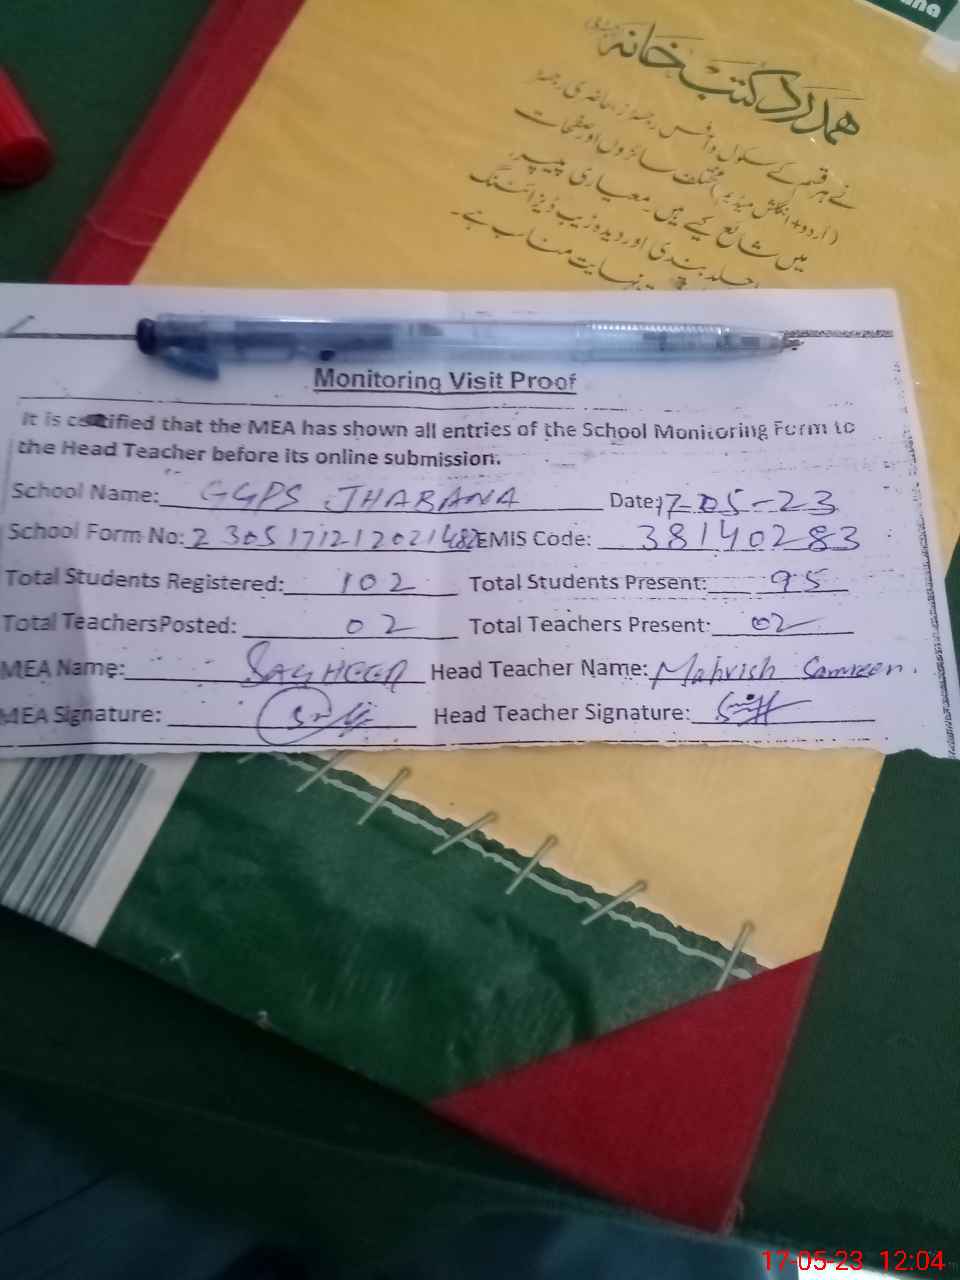 ana
ہمدرد کتب خانہ
نے ہر قسم کے سکول و آفس رجسٹرز، حاضری رجسٹر
(اردو+انگلش میڈیم) مختلف سائزوں اور صفحات
میں شائع کیے ہیں۔ معیاری پیپر،
جلد بندی اور دیدہ زیب ڈیزائننگ
نہایت مناسب ہے۔
Monitoring Visit Proof
It is certified that the MEA has shown all entries of the School Monitoring Form to
the Head Teacher before its online submission.
School Name: GGPS JHARANA Date: 17-05-23
School Form No: 2305171212021482 EMIS Code: 38140283
Total Students Registered: 102 Total Students Present: 95
Total TeachersPosted: 02 Total Teachers Present: 02
MEA Name: SAGHEER Head Teacher Name: Mahvish Samreen.
MEA Signature: Head Teacher Signature:
17-05-23 12:04